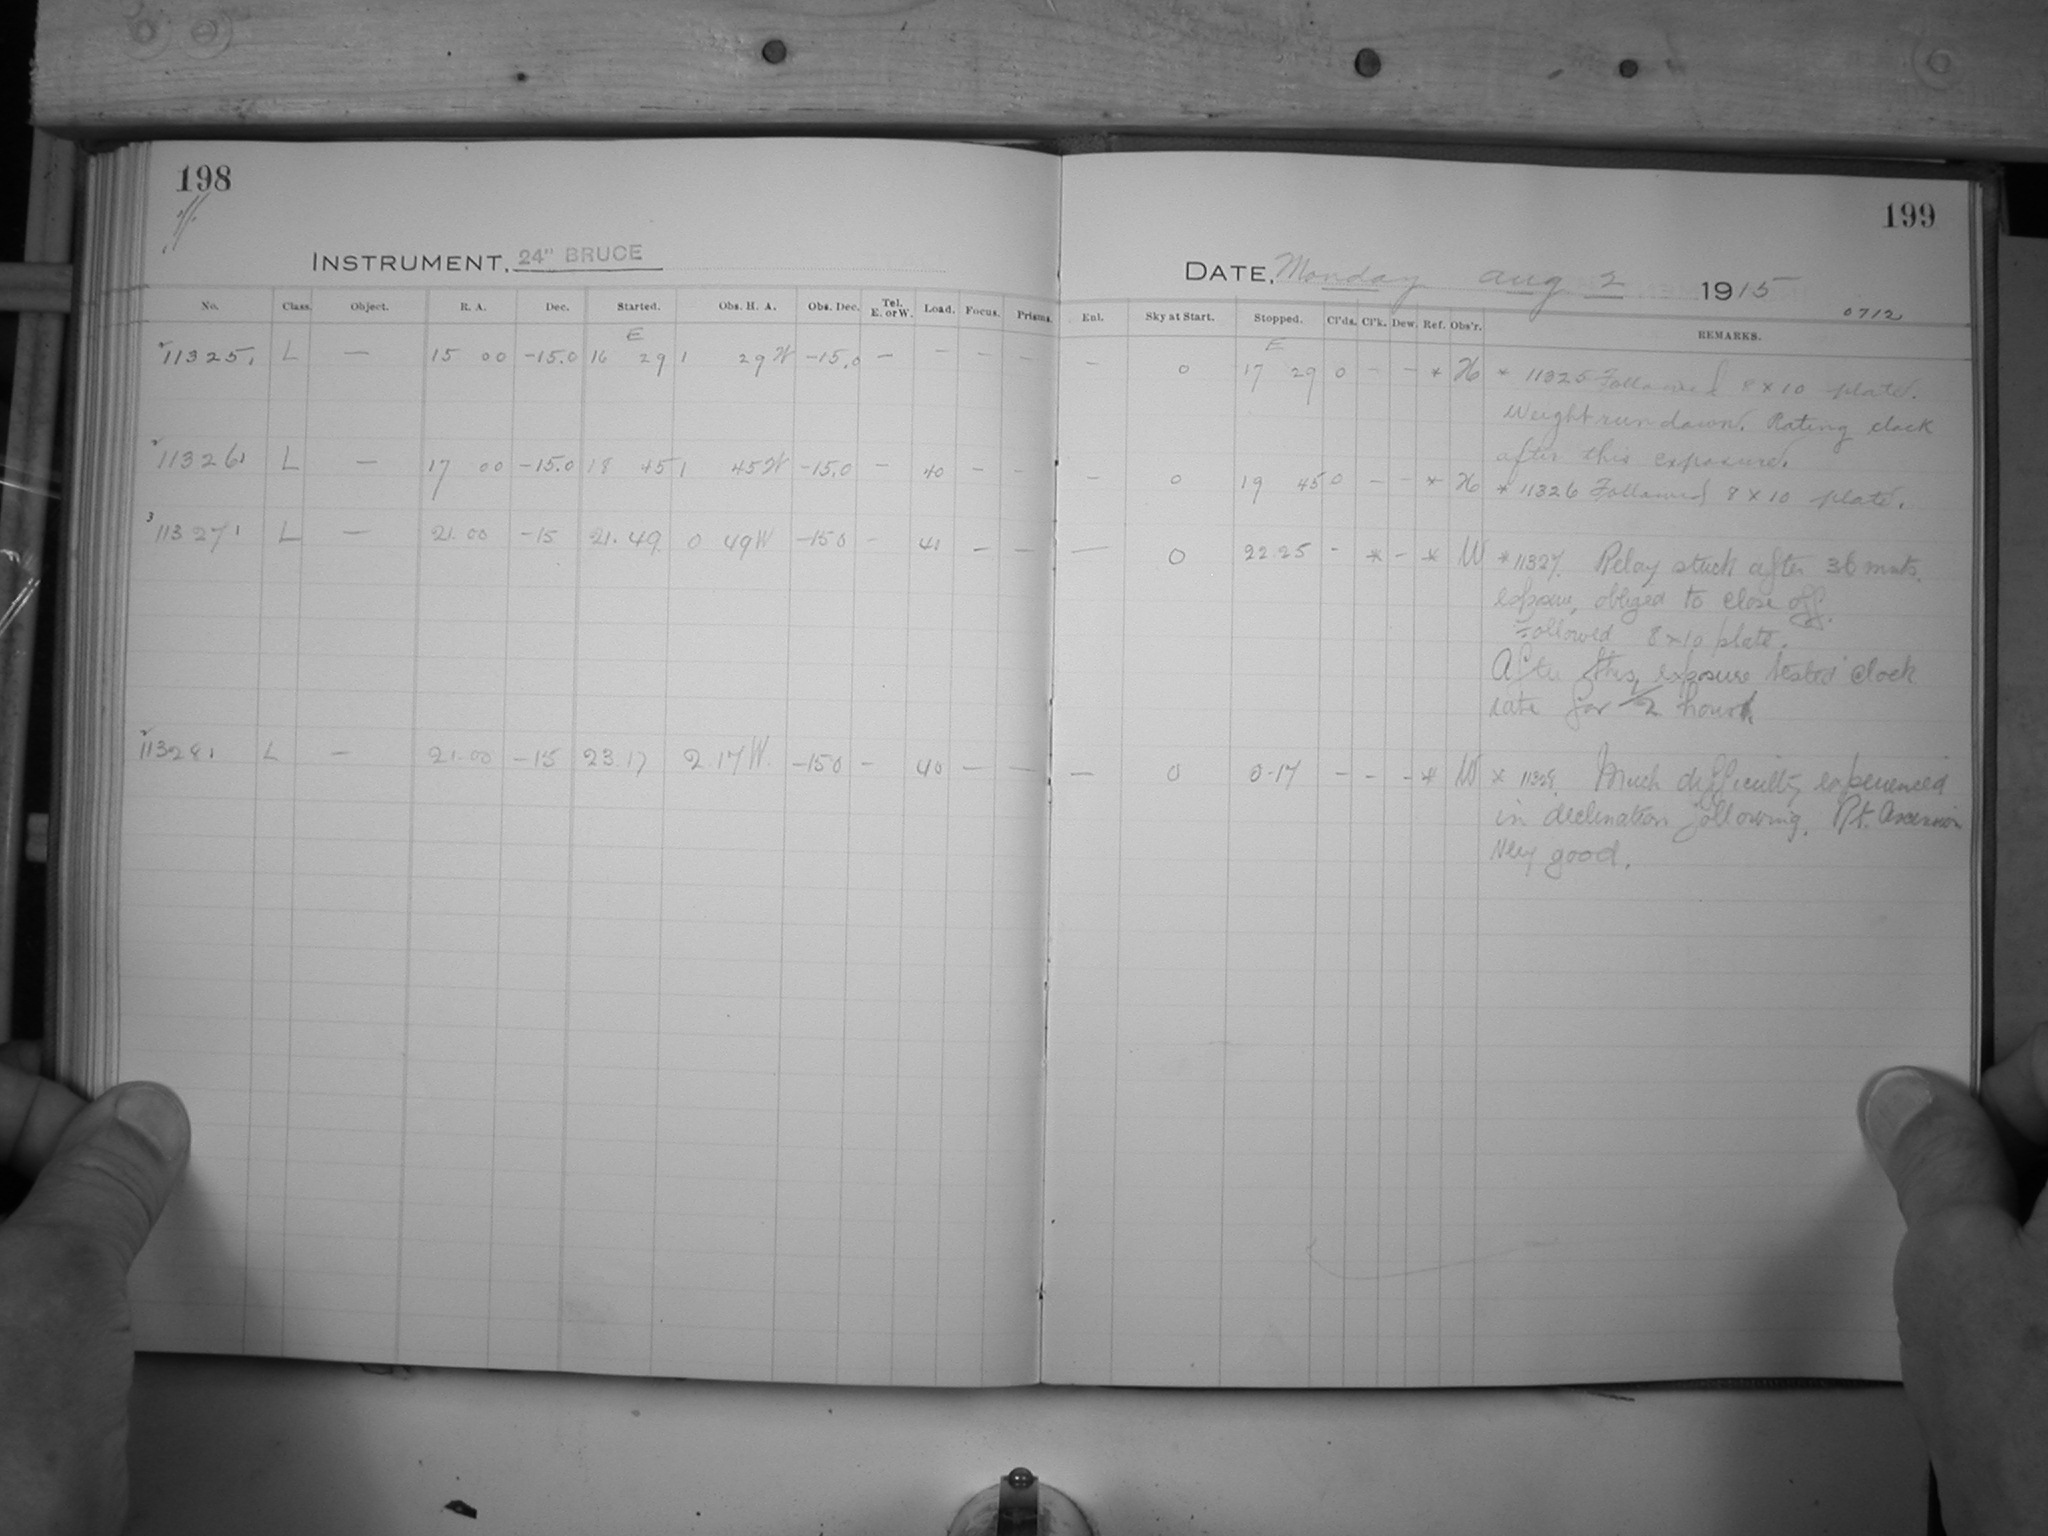 198
199
INSTRUMENT, 24" BRUCE
DATE, Monday Aug 2 1915
0712
No. Class. Object. R. A. Dec. Started. Obs. H. A. Obs. Dec. Tel. E. or W. Load. Focus. Prisms. Enl. Sky at Start. Stopped. Cl'ds. Cl'k. Dew. Ref. Obs'r. REMARKS.
E E
11325 L — 15 00 -15.0 16 29 1 29 W -15.0 — — — — — 0 17 29 0 - - * H * 11325 Followed 8 x 10 plate.
Weight run down. Rating clock
after this exposure.
11326 L — 17 00 -15.0 18 45 1 45 W -15.0 — 40 — — — 0 19 45 0 - - * H * 11326 Followed 8 x 10 plate.
3
11327 L — 21.00 -15 21.49 0 49 W -150 - 41 — — — 0 22 25 - * - * W * 11327. Relay stuck after 36 mnts.
exposure, obliged to close off.
Followed 8x10 plate.
After this exposure tested clock
rate for 1/2 hour.
11328 L — 21.00 -15 23.17 2.17 W. -150 - 40 — — — 0 0.17 - - - * W * 11328. Much difficulty experienced
in declination following. Rt. Ascension
very good.